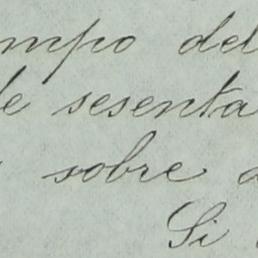 mpo del
de sesenta
sobre
Si